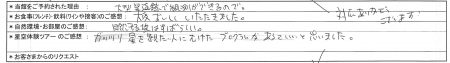 * 当館をご予約された理由 : 大型望遠鏡で観測ができるので。
* お食事(フレンチ)・飲料(ワインや接客)のご感想 : 大変おいしくいただきました。
* 自然環境・お部屋のご感想 : すばらしい。
* 星空体験ツアーのご感想 : 星を観た人にむけたプログラムがあってもいいと思いました。
* お客さまからのリクエスト
対応ありがとうございます!